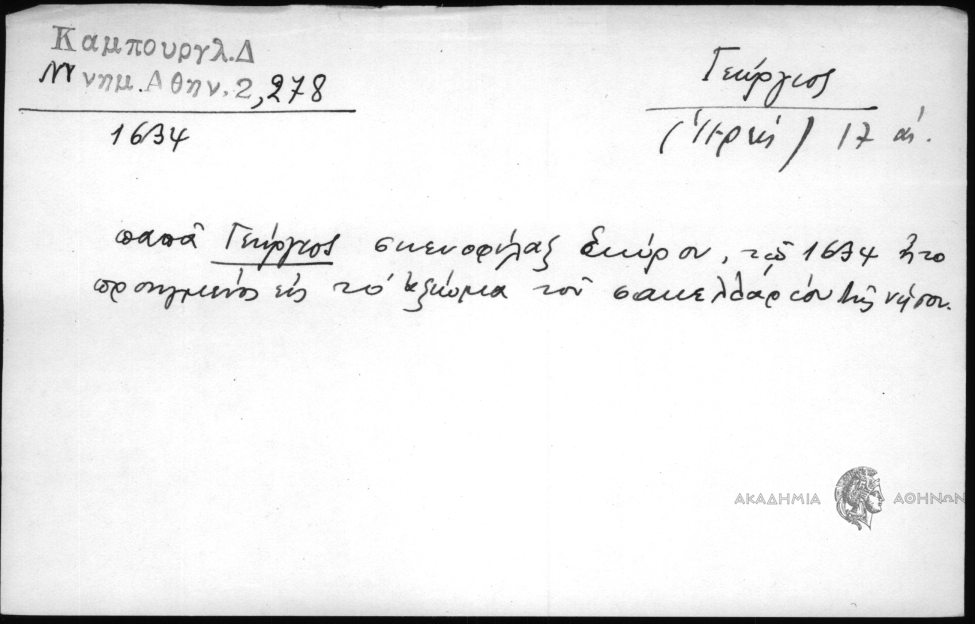 Καμπουργλ.Δ
Μνημ.Αθην.2,278
1634
Γεώργιος
(Ἱερεύς) 17 αἰ.
παπᾶ Γεώργιος σκευοφύλαξ Σκύρου, τῷ 1634 ἦτο
προηγμένος εἰς τὸ ἀξίωμα τοῦ σακελλαρίου τῆς νήσου.
ΑΚΑΔΗΜΙΑ ΑΘΗΝΩΝ